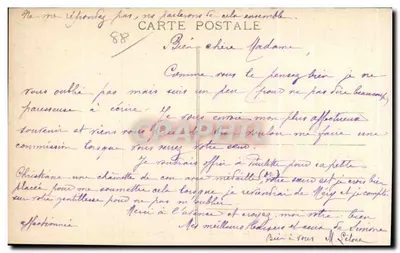 Ne me répondez pas, nous parlerons de cela ensemble.
CARTE POSTALE
88
Bien chère Madame,
Comme vous le pensez bien je ne
vous oublie pas mais suis un peu (pour ne pas dire beaucoup)
paresseuse à écrire. Je vous envoie mon plus affectueux
souvenir et viens vous de bien vouloir me faire une
commission lorsque vous verrez votre sœur
Je voudrais offrir à pour sa petite
Christiane une chaînette de cou avec médaille (or) votre sœur est je crois bien
placée pour me soumettre cela lorsque je reviendrai de et je compte
sur votre gentillesse pour ne pas m'oublier
Merci à l'avance et croyez moi votre bien
affectionnée Mes meilleurs baisers et ceux de Simone
Bien à vous M.